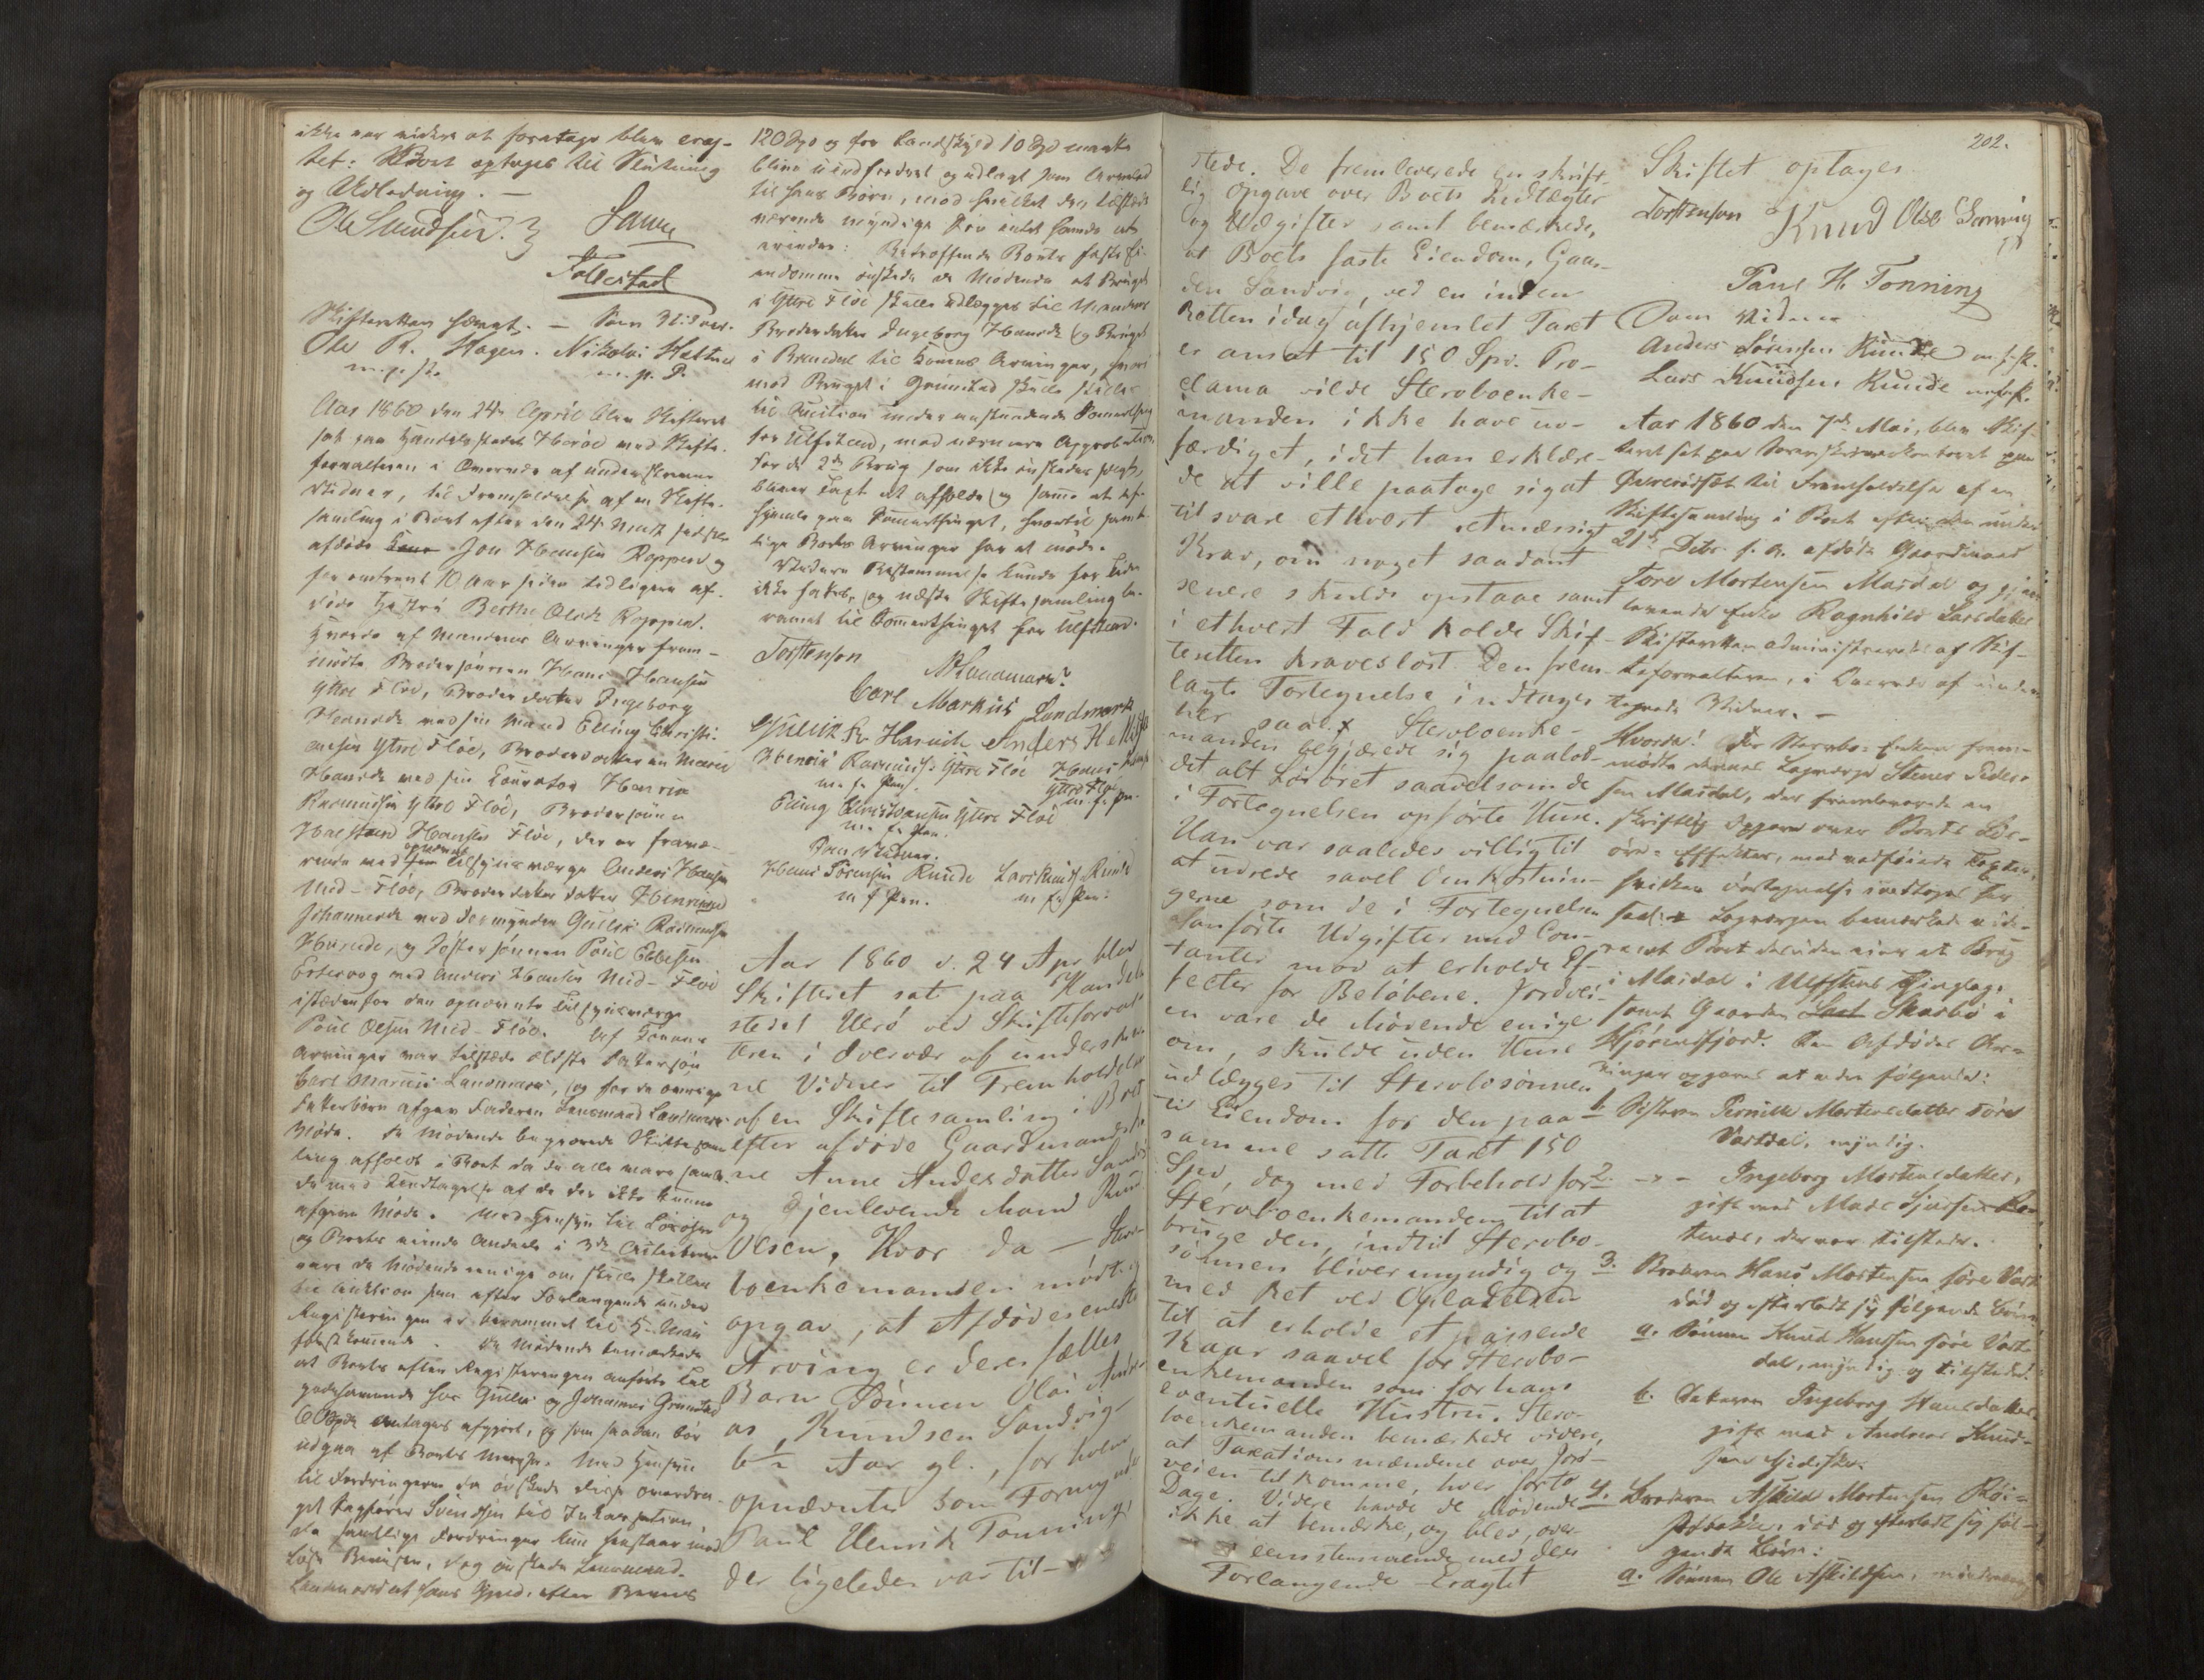 ikke var videre at foretage blev erag-
tet: Boet optages til Slutning
og Udlodning. —
Ole Svendsen.
Follestad
Skifteretten hævet. — Som Vidner.
Ole P. Hagen. Nikolai
Aar 1860 den 24de April blev Skifteret
sat paa Handelsstedet Herøe med Skifte-
forvalteren i Overvær af underskrevne
Vidner, til Fremholdelse af en Skifte-
samling i Boet efter den
afdøde Jon Hansen Roppen og
for omtrent 10 Aar siden tidligere af-
døde Hustru Berthe Olsdt Roppen.
Hvorda af Mandens Arvinger frem-
mødte Brodersønnen Hans Hansen
Ytre Fløe, Broder datter Ingeborg
Hansdt med sin Mand Elling Christi-
ansen Ytre Fløe, Broderdatteren Marie
Hansdt med sin Curator Henrik
Rasmussen Ytre Fløe, Brodersønnen
Hansen Fløe, der er fravæ-
rende med opnævnt Tilsynsværge Anders Hansen
Mid-Fløe, Broderdatters datter
Johannesdt med Formynder Gullik Rasmussen
Haride, og Søstersønnen Poul Ebbesen
Eftevog med Anders Hansen Mid-Fløe
istedenfor den opnævnte Tilsynsværge
Poul Olsen Mid-Fløe. Af Konens
Arvinger var tilstede ældste Fattersøn
Carl Markus Landmark, og for de øvrige
Fatterbørn afgav Faderen Lensmand Landmark
Møde. De Mødende begjærede Skiftesam-
ling afholdt i Boet da de alle vare samle-
de med Undtagelse af de der ikke kunne
afgive Møde. Med Hensyn til Løsøren
og Boets
vare de Mødende enige om skulle stilles
til Auktion som efter Forlangende under
Registeringen er berammet til 5. Mai
førstkommende. De Mødende bemærkede
at Boets efter Registeringen anførte Til-
godehavende hos Gullik og Johannes Grimstad
antages afgjort, og som saadan bør
udgaa af Boets Masse. Med Hensyn
til Fordringerne da ønskede disse overdra-
get Sagfører Svendsen til Inkassation,
da samtlige Fordringer kun henstaar med
løse Beviser, dog ønskede Lensmand
Landmark at hans Gjeld efter Beviis
120 Spd og for Landskyld 10 Spd maatte
blive uindfordret og udlagt som Arvelod
til hans Børn, mod hvilket den tilstede-
værende myndige Søn intet havde at
erindre: Betræffende Boets faste Ei-
endomme ønskede de Mødende at Bruget
i Ytre Fløe skulle udlægges til Mandens
Broderdatter Ingeborg Hansdt og Bruget
i til Konens Arvinger, hvori-
mod Bruget i Grimstad skulle stilles
til Auction under anstundende Sommerthing
for Ulfsteen, med nærmere Approbation.
For de 2de Brug som ikke ønskedes solgt,
bliver Taxt at afholde og samme at af-
hjemle paa Sommerthinget, hvortil samt-
lige Boets Arvinger har at møde.
Videre Bestemmelse kunde for Tiden
ikke fattes, og næste Skiftesamling be-
rammet til Sommerthinget for Ulfsteen.
Torstenson
N Landmark
Carl Markus Landmark
Gullik R. Haride Anders H
Henrik Rasmuss: Ytre Fløe Hans Hans
m. f. Pen. Ytre Fløe m. f. Pn.
Elling Christiansen Ytre Fløe
m. f. Pen.
Som Vidner.
Hans Sørensen Runde Lars Knuds: Runde
m f Pen. m f Pen:
Aar 1860 d. 24 Apr blev
Skifteret sat paa Handels-
stedet Herø ved Skifteforval-
teren i Overvær af underskrev-
ne Vidner til Fremholdelse
af en Skiftesamling i Boet
efter afdøde Gaardmandsko-
ne Anne Andersdatter Sandvig
og gjenlevende Mand Knud
Olsen, Hvor da — Sterv-
boenkemanden mødte
opgav, at Afdødes eneste
Arving er deres fælles
Barn Sønnen Oluf Andre-
as, Knudsen Sandvig
6½ Aar gl., for hvem
opnævntes som Formynder
Paul Henrik Tonning,
der ligeledes var til-
202.
stede. De fremleverede en skrift-
lig Opgave over Boets Indtægter
og Udgifter samt bemærkede,
at Boets faste Eiendom, Gaar-
den Sandvig, ved en inden
Retten idag afhjemlet Taxt
er ansat til 150 Spd. Pro-
clama vilde Stervboenke-
manden ikke have ud-
færdiget, idet han erklære-
de at ville paatage sig at
tilsvare ethvert retmæssigt
Krav, om noget saadant
senere skulde opstaae samt
i ethvert Fald holde Skif-
teretten kravesløst. Den frem-
lagte Fortegnelse indtages
her saal.: Stervboenke-
manden begjærede sig paalod-
det alt Løsøret saavelsom de
i Fortegnelsen opførte Huse.
Han var saaledes villig til
at udrede savel Omkostnin-
gerne som de i Fortegnelsen
anførte Udgifter med Con-
tanter mod at erholde Ef-
fecter for Beløbene. Jordvei-
en vare de Mødende enige
om, skulde uden Huse
udlægges til Stervbosønnen
til Eiendom for den paa
samme satte Taxt 150
Spd, dog med Forbehold for
Stervboenkemanden til at
bruge den, indtil Stervbo-
sønnen bliver myndig og
med Ret ved Opladelsen
til at erholde et passende
Kaar saavel for Stervbo-
enkemanden som for hans
eventuelle Hustru. Sterv-
boenkemanden bemærkede videre,
at Taxationsmændene over Jord-
veien tilkomme, hver for to
Dage. Videre havde de Mødende
ikke at bemærke, og blev over-
eensstemmende med den
Forlangende Eragtet
Skiftet optages
Torstenson Knud Olsen Sandvig
Paul H. Tonning
Som Vidner
Anders Sørensen Runde m. f. P.
Lars Knudsen Runde m f P.
Aar 1860 den 7de Mai, blev Skif-
teret sat paa Sorenskriverkontoret paa
til Fremholdelse af en
Skiftesamling i Boet efter den under
21de Debr. f. A. afdøde Gaardmand
Tore Mortensen Masdal og gjen-
levende Enke Ragnhild Larsdatter
Skifteretten administreredes af Skif-
teforvalteren, i Overvær af under-
tegnede Vidner. —
Hvorda! For Stervbo-Enken frem-
mødte dennes Laugværge Stener Peder-
sen Masdal, der fremleverede en
skriftlig Opgave over Boets Løs-
øre-Effekter, med vedføiede Taxter,
hvilken Fortegnelse indtages her
saal: Laugværgen bemærkede vide-
re at Boet desuden eier et Brug
i Masdal i Ulfsteens Thinglag
samt Gaarden Skarbø i
Hjørensfjord. Den Afdødes Ar-
vinger opgaves at være følgende:
1. Søsteren Pernille Mortensdatter søre
Vartdal, myndig.
2. —"— Ingeborg Mortensdatter,
gift med Mads
, der var tilstede.
3. Broderen Hans Mortensen søre Vart-
død og efterladt sig følgende Børn:
a. Sønnen Knud Hansen søre Vart-
dal, myndig og tilstede.
b. Datteren Ingeborg Hansdatter
gift med Andreas Knud-
sen
4. Broderen Askild Mortensen
død og efterladt sig føl-
gende Børn:
a. Sønnen Ole Askildsen,